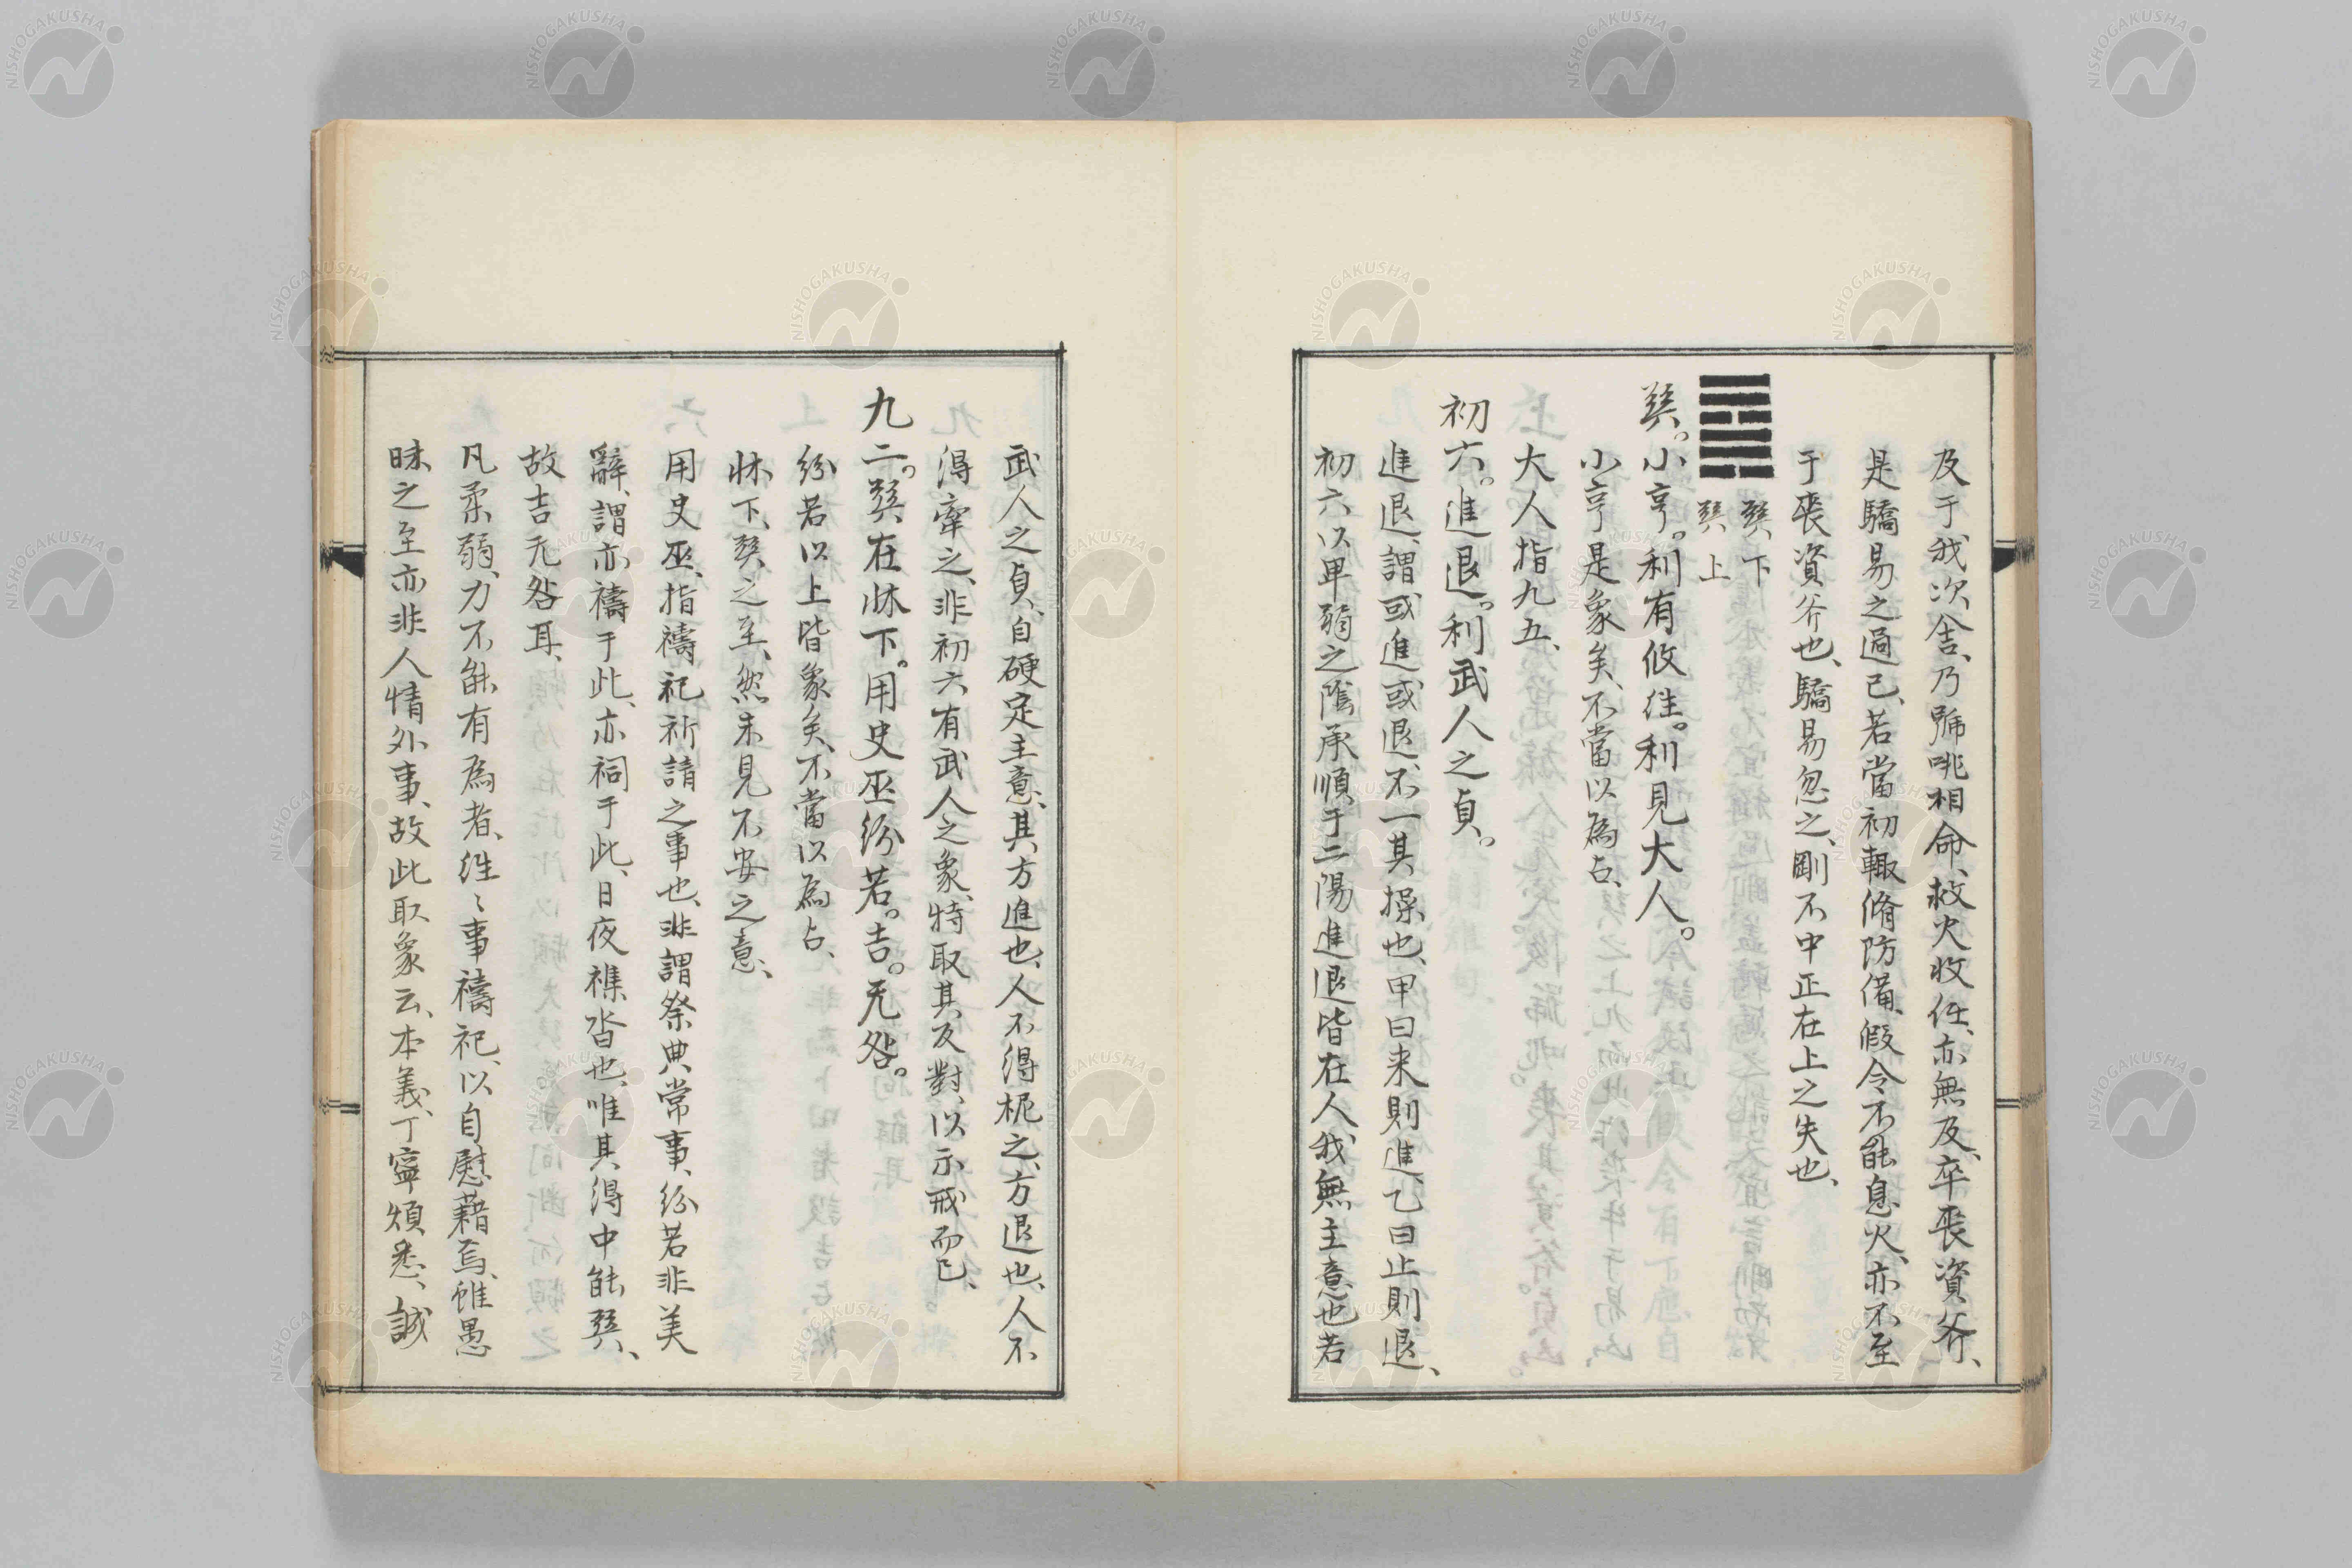 及于我次舎、乃號咷相命、救火收任、亦無及、卒喪資斧、
是驕易之過已、若當初輙脩防備、假令不能息火、亦不至
于喪資斧也、驕易忽之、剛不中正在上之失也、
巽下
巽上
巽。小亨。利有攸往。利見大人。
小亨是象矣、不當以為占、
大人指九五、
初六。進退。利武人之貞。
進退、謂或進或退、不一其操也、甲曰来則進、乙曰止則退、
初六以卑弱之陰承順于二陽進退皆在人我無主意也若
武人之貞、自硬定主意、其方進也、人不得柅之、方退也、人不
得牽之、非初六有武人之象、特取其反對、以示戒而已、
九二。巽在牀下。用史巫紛若。吉。无咎。
紛若以上皆象矣、不當以為占、
牀下、巽之至、然未見不安之意、
用史巫、指禱祀祈請之事也、非謂祭典常事、紛若非美
辭、謂亦禱于此、亦祠于此、日夜襍沓也、唯其得中能巽、
故吉无咎耳、
凡柔弱、力不能有為者、往〻事禱祀、以自慰藉焉、雖愚
昧之至亦非人情外事、故此取象云、本義、丁寧煩悉、誠
NISHOGAKUSHA